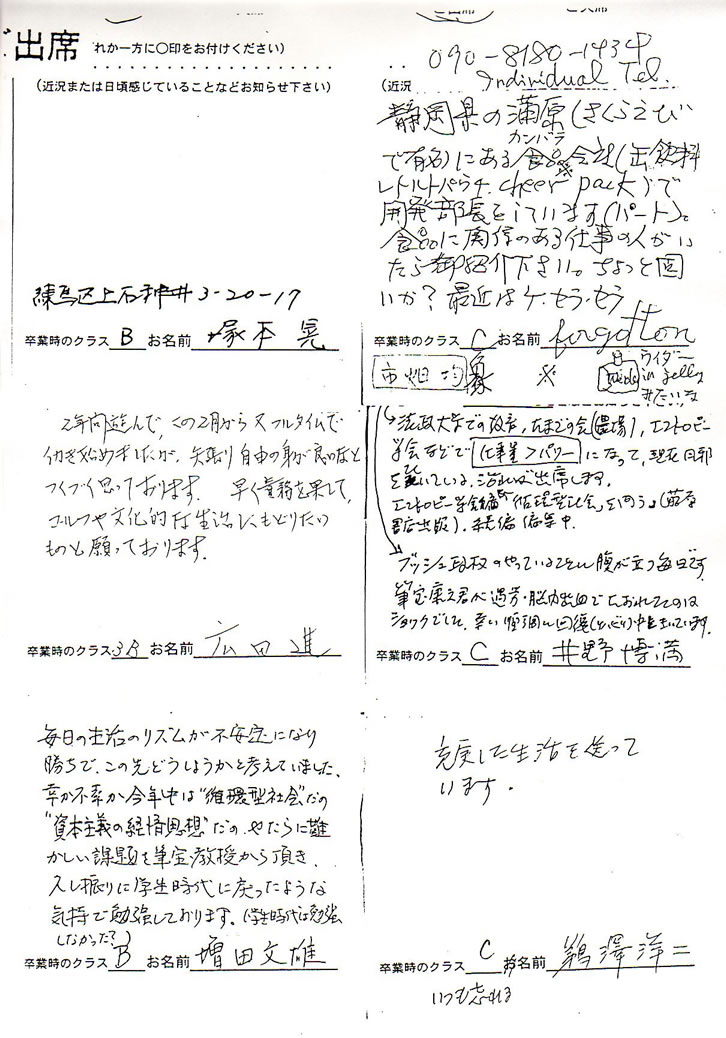 ご出席
れか一方に〇印をお付けください)
(近況または日頃感じていることなどお知らせ下さい)
練馬区上石神井3-20-17
卒業時のクラス B お名前 塚本晃
(近況
090-8180-1434
Individual Tel.
静岡県の蒲原(さくらえび
カンバラ
で有名)にある食品会社(缶飲料
レトルトパウチ. cheer pack)で
開発部長をしています(パート)。
食品に関係のある仕事の人がい
たら御紹介下さい。ちょっと固
いか?最近はケ・セラ・セラ
卒業時のクラス C お名前 forgotten
市畑 均
※
ウイダー
in jelly
みたいな
2年間遊んで、この2月から又フルタイムで
働き始めましたが、矢張り自由の身が良いなと
つくづく思っております. 早く業務を果して、
ゴルフや文化的な生活にもどりたい
ものと願っております.
卒業時のクラス 3B お名前 広田 進
法政大学での教育, たまごの会(農場), エントロピー
学会などで 仕事量>パワー になって, 現在日部
を書いている.治れば出席します.
エントロピー学会編「循環型社会」を問う」(藤原
書店出版). 続編 編集中.
ブッシュ政权のやっていることに腹が立つ毎日です.
筆宝康之君が過労・脳内出血でたおれたのは
ショックでした. 幸い順調に回復(とびとび)中ときいています.
卒業時のクラス C お名前 井野博満
毎日の生活のリズムが不安定になり
勝ちで、この先どうしようかと考えていました、
幸か不幸か今年中は"循環型社会"だの
"資本主義の経済思想"だの、やたらに難
かしい課題を筆宝教授から頂き、
久し振りに学生時代に戻ったような
気持で勉強しております。(学生時代は勉強
しなかった?)
卒業時のクラス B お名前 増田文雄
充実した生活を送って
います.
卒業時のクラス C お名前 鵜澤洋二
いつも忘れる